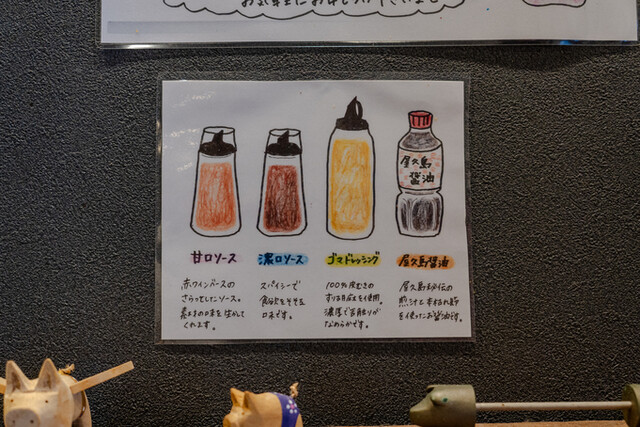 屋久島
醤油
甘口ソース
濃口ソース
ゴマドレッシング
屋久島醤油
赤ワインベースの
さらっとしたソース。
素材の味を生かして
くれます。
スパイシーで
食欲をそそる
口味です。
100%皮むきの
すりごまを使用。
濃厚で舌触りが
なめらかです。
屋久島秘伝の
煎汁と本枯れ節
を使ったお醤油です。